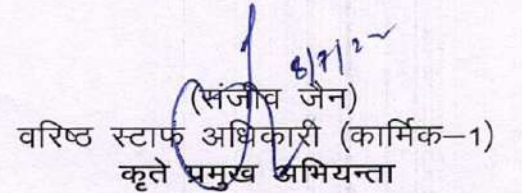 8/7/2
(संजीव जैन)
वरिष्ठ स्टाफ अधिकारी (कार्मिक–1)
कृते प्रमुख अभियन्ता